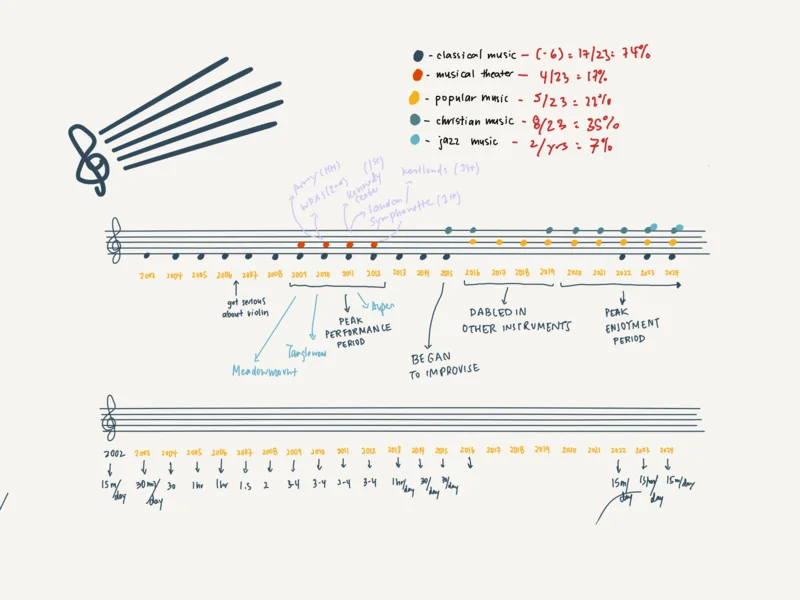 - classical music - (-6) = 17/23 = 74%
- musical theater - 4/23 = 17%
- popular music - 5/23 = 22%
- christian music - 8/23 = 35%
- jazz music - 2/yrs = 7%
Kennedy Center (1st)
Kentlands (3rd)
London Symphonette
2003 2004 2005 2006 2007 2008 2009 2010 2011 2012 2013 2014 2015 2016 2017 2018 2019 2020 2021 2022 2023 2024
got serious
about violin
Meadowmount
Tanglewood
PEAK
PERFORMANCE
PERIOD
Aspen
BEGAN
TO IMPROVISE
DABLED IN
OTHER INSTRUMENTS
PEAK
ENJOYMENT
PERIOD
2002 2003 2004 2005 2006 2007 2008 2009 2010 2011 2012 2013 2014 2015 2016 2017 2018 2019 2020 2021 2022 2023 2024
15m/day 30m/day 30 1hr 1hr 1.5 2 3-4 3-4 3-4 3-4 1hr/day 30/day 30/day 15m/day 15m/day 15m/day